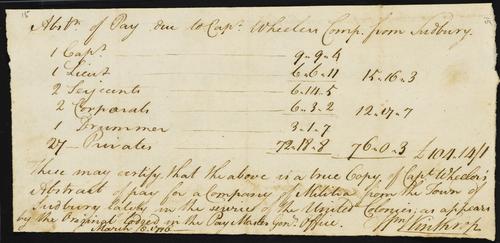 Abstr. of Pay due to Capt. Wheelers Comp. from Sudbury.
1 Capt. 9-9-4
1 Lieut 6-6-11 15-16-3
2 Serjeants 6-14-5
2 Corporals 6-3-2 12-17-7
1 Drummer 3-1-7
27 Privates 72-18-8 76-0-3 £104.14/1
These may certify that the above is a true Copy of Capt. Wheelers
Abstract of pay for a Company of Militia from the Town of
Sudbury lately in the service of the United Colonies, as appears
by the Original lodged in the Pay Master Genls. Office.
March 8. 1776 Winthrop